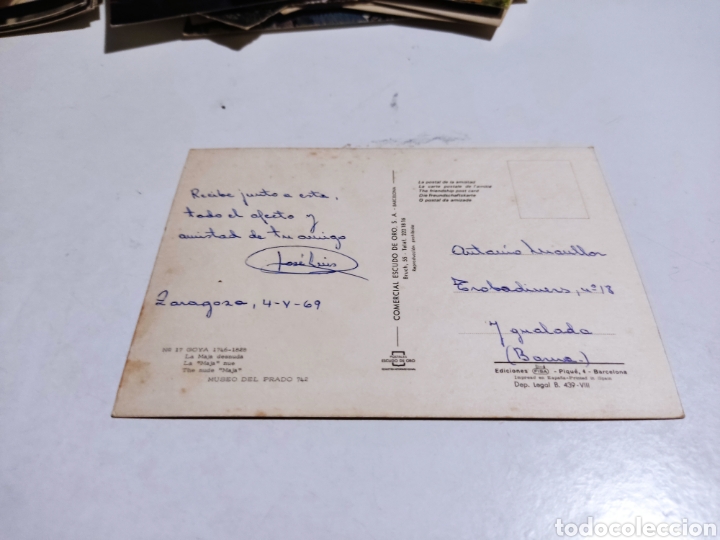 Recibe junto a esta,
todo el afecto y
amistad de tu amigo
José Luis
Zaragoza, 4-V-69
GOYA 1746-1828
La Maja desnuda
La "Maja" nue
The nude "Maja"
MUSEO DEL PRADO 742
COMERCIAL ESCUDO DE ORO, S. A. - BARCELONA
Bruch, 55 - Telef.
Reproducción prohibida
ESCUDO DE ORO
La postal de la amistad
La carte postale de l'amitié
The friendship post card
Die Freundschaftskarte
Antonio
Trobadiners, nº 18
Igualada
(Barna.)
Ediciones PIBA - Piqué, 4 - Barcelona
Impreso en España-Printed in Spain
Dep. Legal B. 439-VIII
todocoleccion